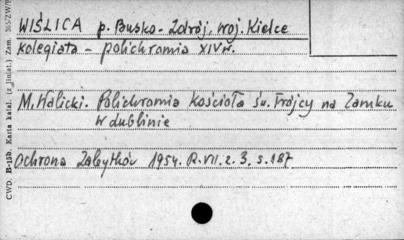 WIŚLICA p. Busko-Zdrój, woj. Kielce
kolegiata - polichromia XIV w.
M. Walicki. Polichromia kościoła św. Trójcy na Zamku
w dublinie
Ochrona Zabytków 1954. R. VII. z. 3. s. 187
CWD. B-13b. Karta katal. (z liniat.) Zam.